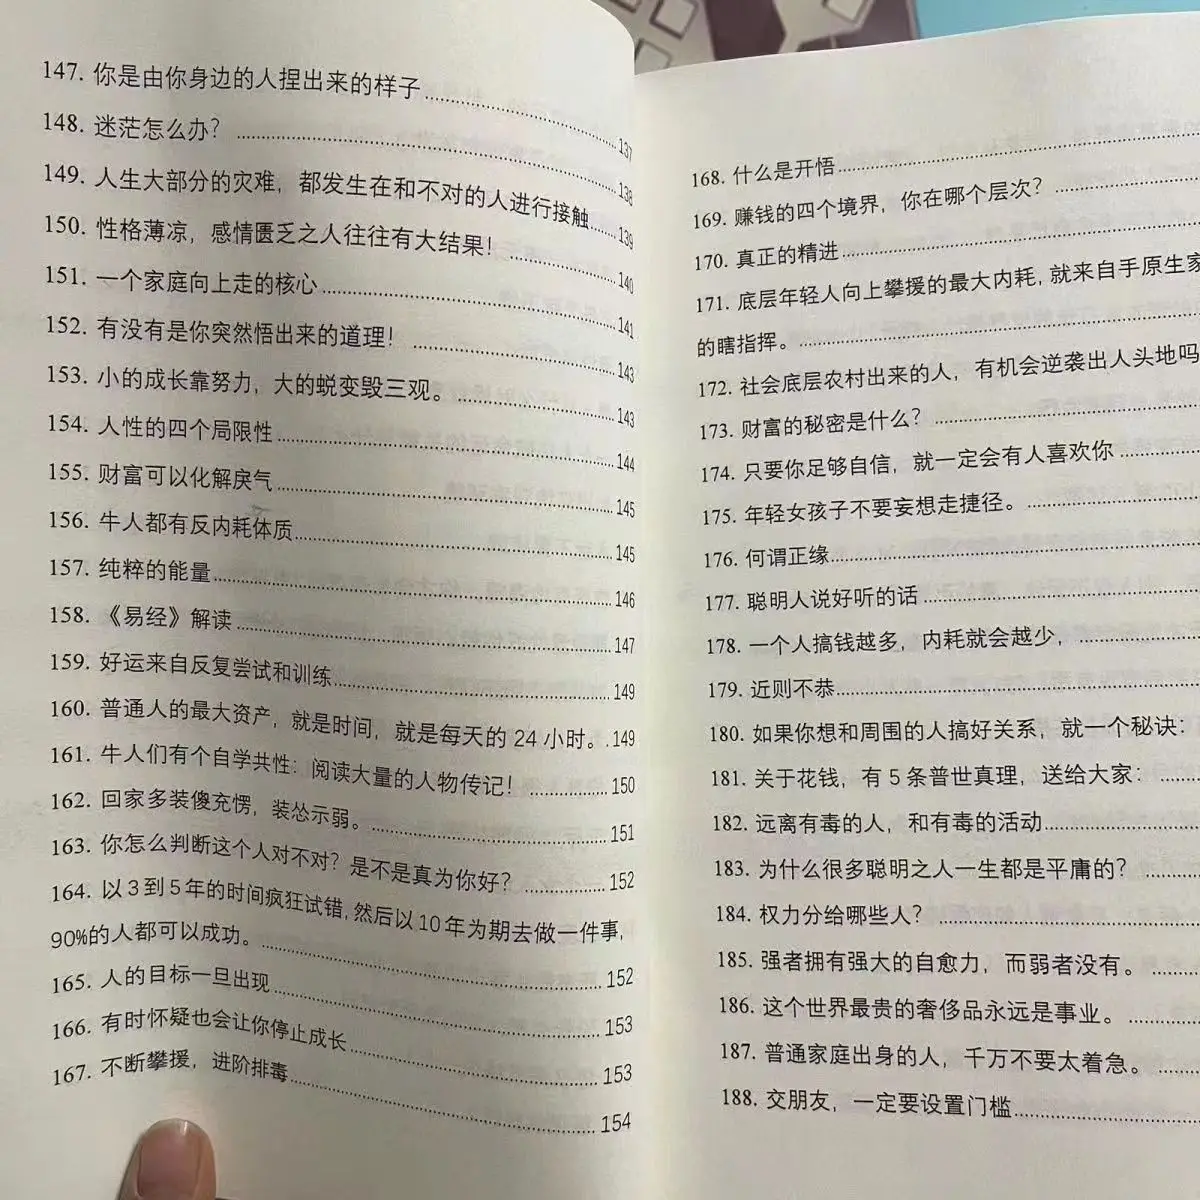 147. 你是由你身边的人捏出来的样子 137
148. 迷茫怎么办？ 138
149. 人生大部分的灾难，都发生在和不对的人进行接触 139
150. 性格薄凉，感情匮乏之人往往有大结果！ 140
151. 一个家庭向上走的核心 141
152. 有没有是你突然悟出来的道理！ 143
153. 小的成长靠努力，大的蜕变毁三观。 143
154. 人性的四个局限性 144
155. 财富可以化解戾气 145
156. 牛人都有反内耗体质 145
157. 纯粹的能量 146
158. 《易经》解读 147
159. 好运来自反复尝试和训练 149
160. 普通人的最大资产，就是时间，就是每天的 24 小时。 149
161. 牛人们有个自学共性：阅读大量的人物传记！ 150
162. 回家多装傻充愣，装怂示弱。 151
163. 你怎么判断这个人对不对？是不是真为你好？ 152
164. 以 3 到 5 年的时间疯狂试错，然后以 10 年为期去做一件事，
90%的人都可以成功。 152
165. 人的目标一旦出现 153
166. 有时怀疑也会让你停止成长 153
167. 不断攀援，进阶排毒 154
168. 什么是开悟
169. 赚钱的四个境界，你在哪个层次？
170. 真正的精进
171. 底层年轻人向上攀援的最大内耗，就来自手原生家
的瞎指挥。
172. 社会底层农村出来的人，有机会逆袭出人头地吗
173. 财富的秘密是什么？
174. 只要你足够自信，就一定会有人喜欢你
175. 年轻女孩子不要妄想走捷径。
176. 何谓正缘
177. 聪明人说好听的话
178. 一个人搞钱越多，内耗就会越少，
179. 近则不恭
180. 如果你想和周围的人搞好关系，就一个秘诀：
181. 关于花钱，有 5 条普世真理，送给大家：
182. 远离有毒的人，和有毒的活动
183. 为什么很多聪明之人一生都是平庸的？
184. 权力分给哪些人？
185. 强者拥有强大的自愈力，而弱者没有。
186. 这个世界最贵的奢侈品永远是事业。
187. 普通家庭出身的人，千万不要太着急。
188. 交朋友，一定要设置门槛